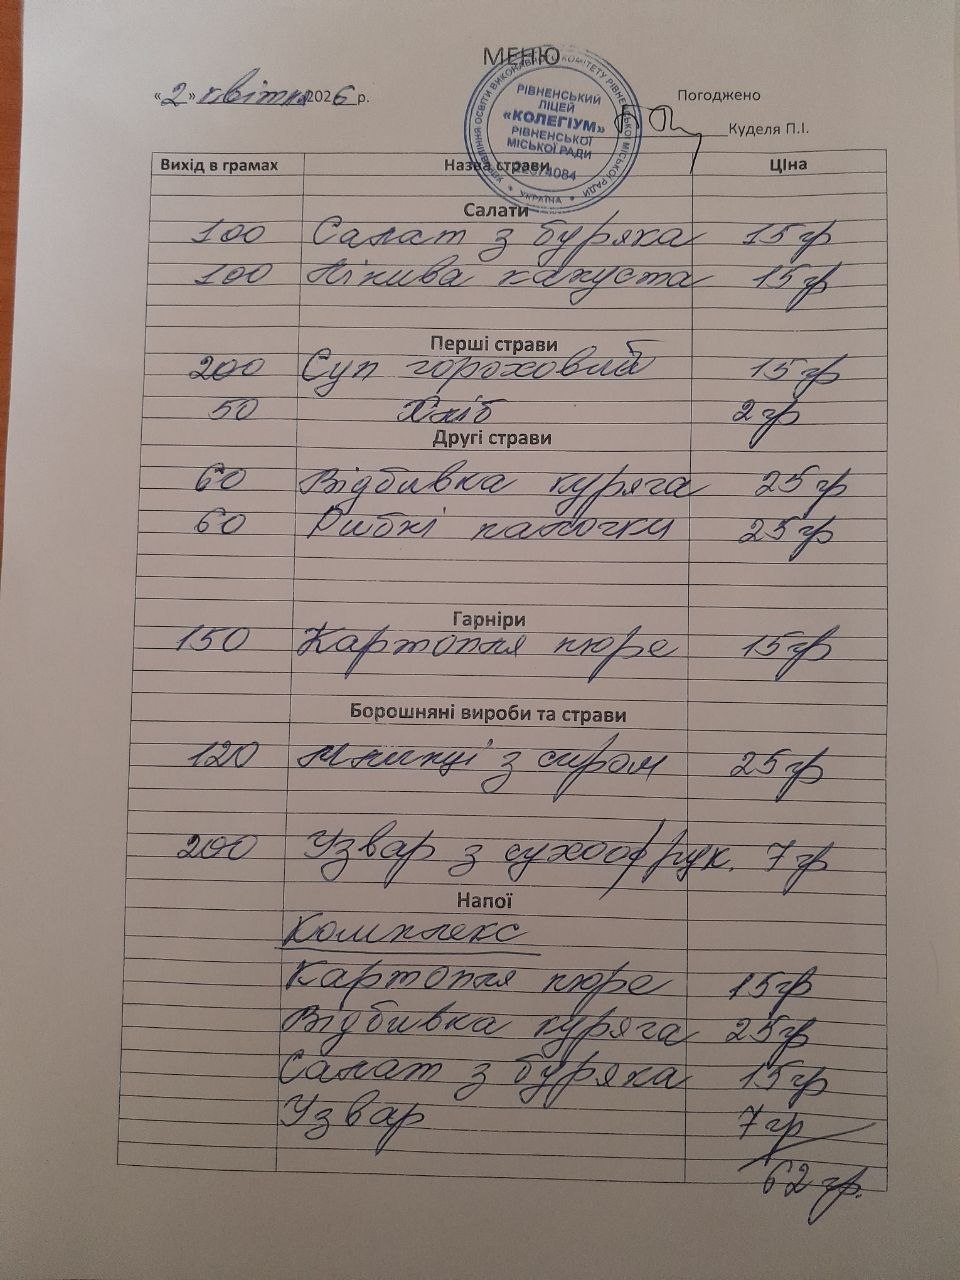 МЕНЮ
«2» квітня 2026 р.
Погоджено
Куделя П.І.
УПРАВЛІННЯ ОСВІТИ ВИКОНАВЧОГО КОМІТЕТУ РІВНЕНСЬКОЇ МІСЬКОЇ РАДИ * УКРАЇНА *
РІВНЕНСЬКИЙ
ЛІЦЕЙ
«КОЛЕГІУМ»
РІВНЕНСЬКОЇ
МІСЬКОЇ РАДИ
22574084
Вихід в грамах Назва страви Ціна
Салати
100 Салат з буряка 15 гр
100 Пікива капуста 15 гр
Перші страви
200 Суп гороховий 15 гр
50 Хліб 2 гр
Другі страви
60 Відбивка куряча 25 гр
60 Рибні палочки 25 гр
Гарніри
150 Картопля пюре 15 гр
Борошняні вироби та страви
120 Млинці з сиром 25 гр
200 Узвар з сухоофрук. 7 гр
Напої
Комплекс
Картопля пюре 15 гр
Відбивка куряча 25 гр
Салат з буряка 15 гр
Узвар 7 гр
62 гр.